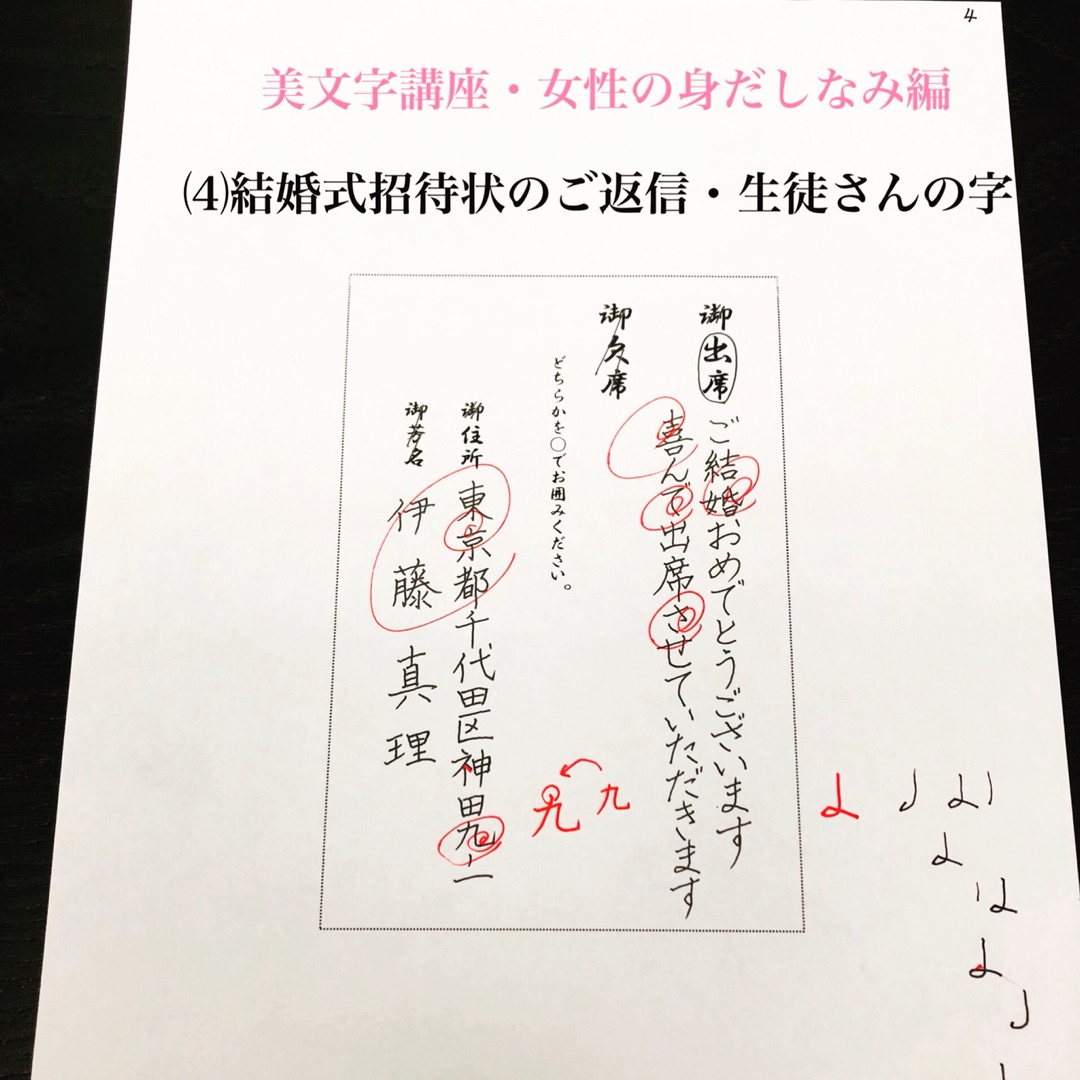 4
美文字講座・女性の身だしなみ編
⑷結婚式招待状のご返信・生徒さんの字
御出席
ご結婚おめでとうございます
喜んで出席させていただきます
御欠席
どちらかを〇でお囲みください。
御住所 東京都千代田区神田九ー二
御芳名 伊藤真理
九
九